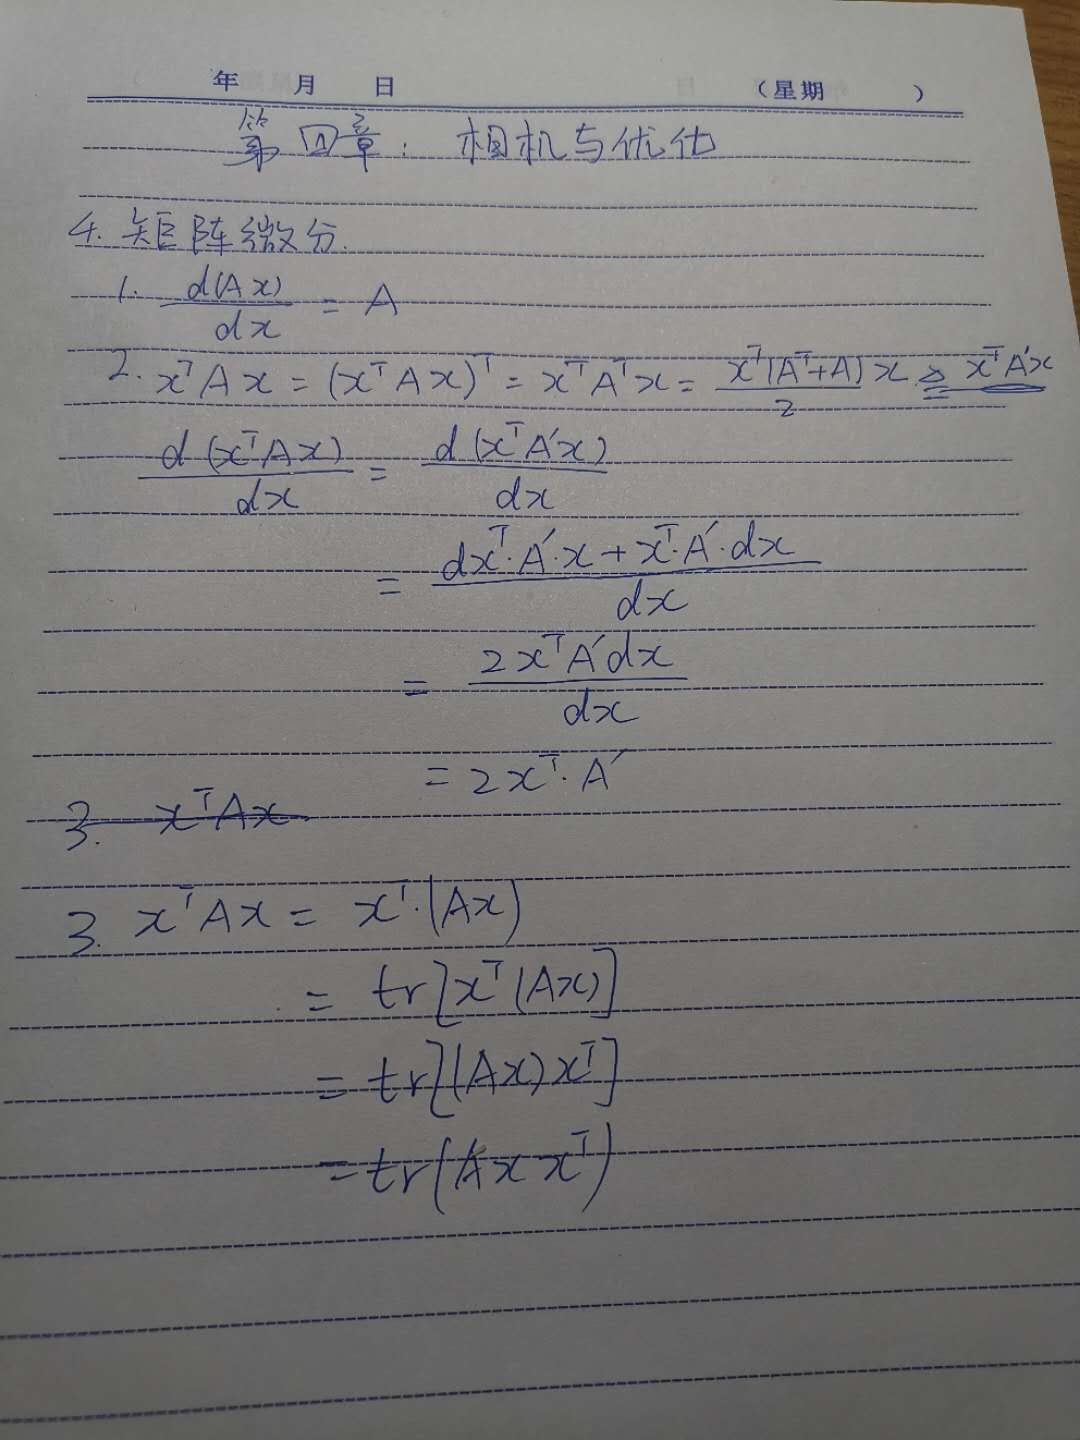 年 月 日 （星期 ）
第四章: 相机与优化
4. 矩阵微分.
1. d(Ax)/dx = A
2. xᵀAx = (xᵀAx)ᵀ = xᵀAᵀx = xᵀ(Aᵀ+A)x/2 ≜ xᵀA′x
d(xᵀAx)/dx = d(xᵀA′x)/dx
= (dxᵀ·A′·x + xᵀ·A′·dx)/dx
= 2xᵀA′dx/dx
= 2xᵀ·A′
3. xᵀAx
3. xᵀAx = xᵀ·(Ax)
= tr[xᵀ(Ax)]
= tr[(Ax)xᵀ]
= tr(Axxᵀ)